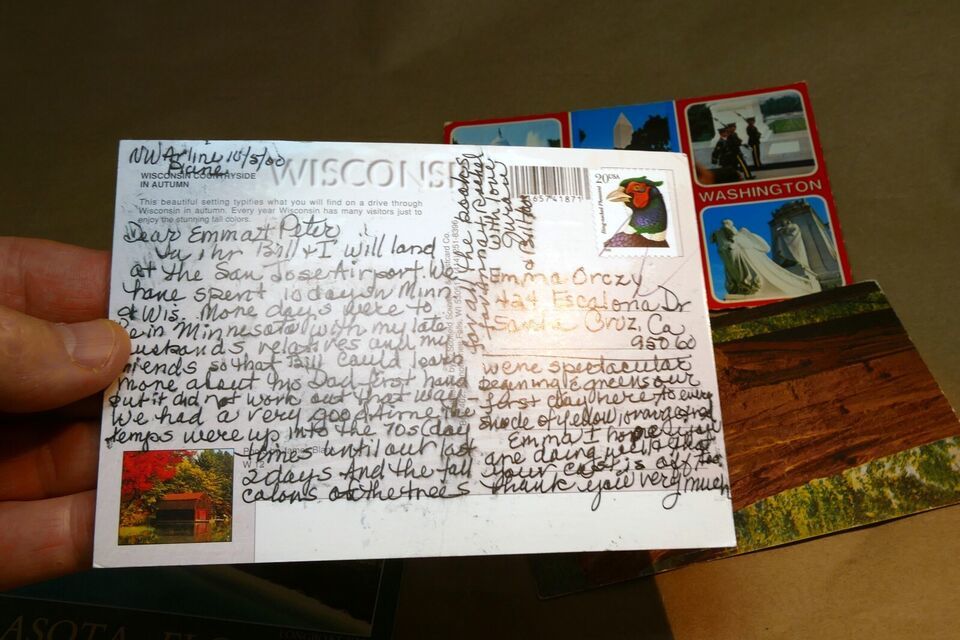 NW Airline 10/5/00
Plane
WISCONSIN
WISCONSIN COUNTRYSIDE
IN AUTUMN
This beautiful setting typifies what you will find on a drive through
Wisconsin in autumn. Every year Wisconsin has many visitors just to
enjoy the stunning fall colors.
Dear Emma & Peter
In 1 hr Bill & I will land
at the San Jose Airport. We
have spent 10 days in Minn
& Wis. More days were to
be in Minnesota with my late
husbands relatives and my
friends so that Bill could learn
more about his Dad first hand
but it did not work out that way
We had a very good time the
temps were up into the 70s (day
times) until our last
2 days And the fall
colors on the trees
were spectacular
begining & greens our
first day here to every
shade of yellow, orange & red
Emma I hope you
are doing well & that
your cast is off too.
Thank you very much
for all the postage
for stamma ti
with love
& Bill Hat
20 USA
Ring-necked Pheasant
65741871
Emma Orczy
424 Escalona Dr
Santa Cruz, Ca
95060
W 12
WASHINGTON
ASOTA